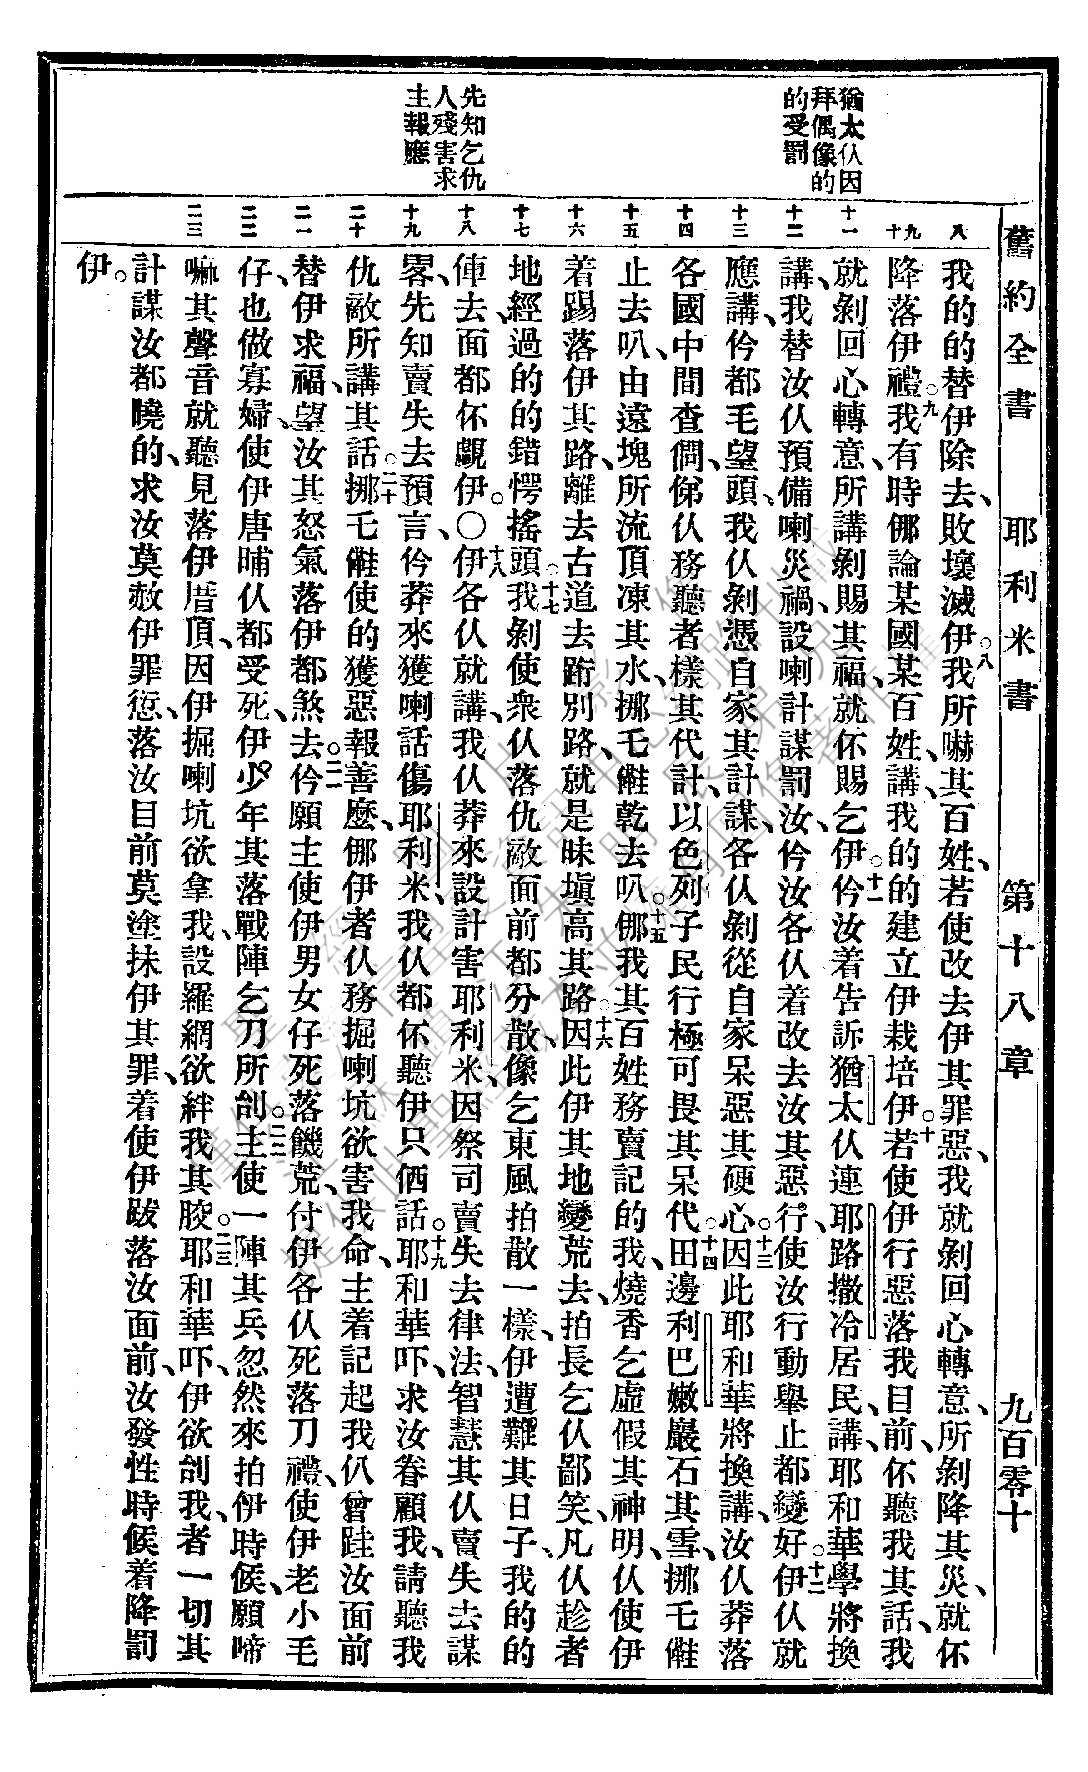 舊約全書 耶利米書 第十八章 九百零十
猶太仈因
拜偶像的
的受罰
先知乞仇
人殘害求
主報應
八
九 十
十一
十二
十三
十四
十五
十六
十七
十八
十九
二十
二一
二二
二三
我的的替伊除去、敗壞滅伊。八我所嚇其百姓、若使改去伊其罪惡、我就剝回心轉意、所剝降其災、就伓
降落伊禮。九我有時㑚論某國某百姓講、我的的建立伊栽培伊。十若使伊行惡落我目前、伓聽我其話、我
就剝回心轉意、所講剝賜其福、就伓賜乞伊。十一仱汝着告訴猶太仈連耶路撒冷居民講、耶和華學將換
講、我替汝仈預備喇災禍、設喇計謀罰汝、仱汝各仈着改去汝其惡行、使汝行動舉止都變好。十二伊仈就
應講、仱都毛望頭、我仈剝憑自家其計謀、各仈剝從自家呆惡其硬心。十三因此耶和華將換講、汝仈莽落
各國中間查倜、俤仈務聽者樣其代計、以色列子民行極可畏其呆代。十四田邊利巴嫩巖石其雪、挪乇𠆧
止去叭、由遠塊所流頂凍其水、挪乇𠆧乾去叭。十五㑚我其百姓務賣記的我、燒香乞虛假其神明、仈使伊
着踢落伊其路、離去古道、去跻別路、就是昧塡高其路。十六因此伊其地變荒去、拍長乞仈鄙笑、凡仈趁者
地經過的的錯愕搖頭。十七我剝使衆仈落仇敵面前都分散、像乞東風拍散一樣、伊遭難其日子、我的的
俥去面都伓覷伊。〇十八伊各仈就講、我仈莽來設計害耶利米、因祭司賣失去律法、智慧其仈賣失去謀
畧、先知賣失去預言、仱莽來獲喇話傷耶利米、我仈都伓聽伊只佰話。十九耶和華吓、求汝眷顧我、請聽我
仇敵所講其話。二十挪乇𠆧使的獲惡報善麽、㑚伊者仈務掘喇坑欲害我命、主着記起我仈曾跬汝面前
替伊求福、望汝其怒氣落伊都煞去。二一仱願主使伊男女仔死落饑荒、付伊各仈死落刀禮、使伊老小毛
仔、也做寡婦、使伊唐晡仈都受死、伊少年其落戰陣乞刀所刣。二二主使一陣其兵忽然來拍伊時候、願啼
嘛其聲音就聽見落伊厝頂、因伊掘喇坑欲拿我、設羅網欲絆我其骹。二三耶和華吓、伊欲刣我、者一切其
計謀汝都曉的、求汝莫赦伊罪愆、落汝目前莫塗抹伊其罪、着使伊跋落汝面前、汝發性時候着降罰
伊。